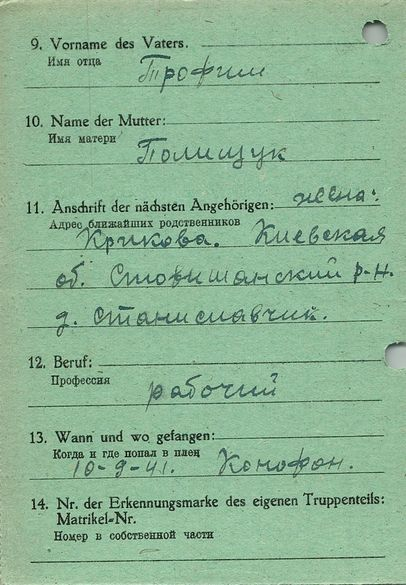 9. Vorname des Vaters.
Имя отца
Трофим
10. Name der Mutter:
Имя матери
Полищук
11. Anschrift der nächsten Angehörigen: жена:
Адрес ближайших родственников
Крикова. Киевская
об. Ставищанский р-н.
д. Станиславчик.
12. Beruf:
Профессия
рабочий
13. Wann und wo gefangen:
Когда и где попал в плен
10-9-41. Конофон.
14. Nr. der Erkennungsmarke des eigenen Truppenteils:
Matrikel-Nr.
Номер в собственной части